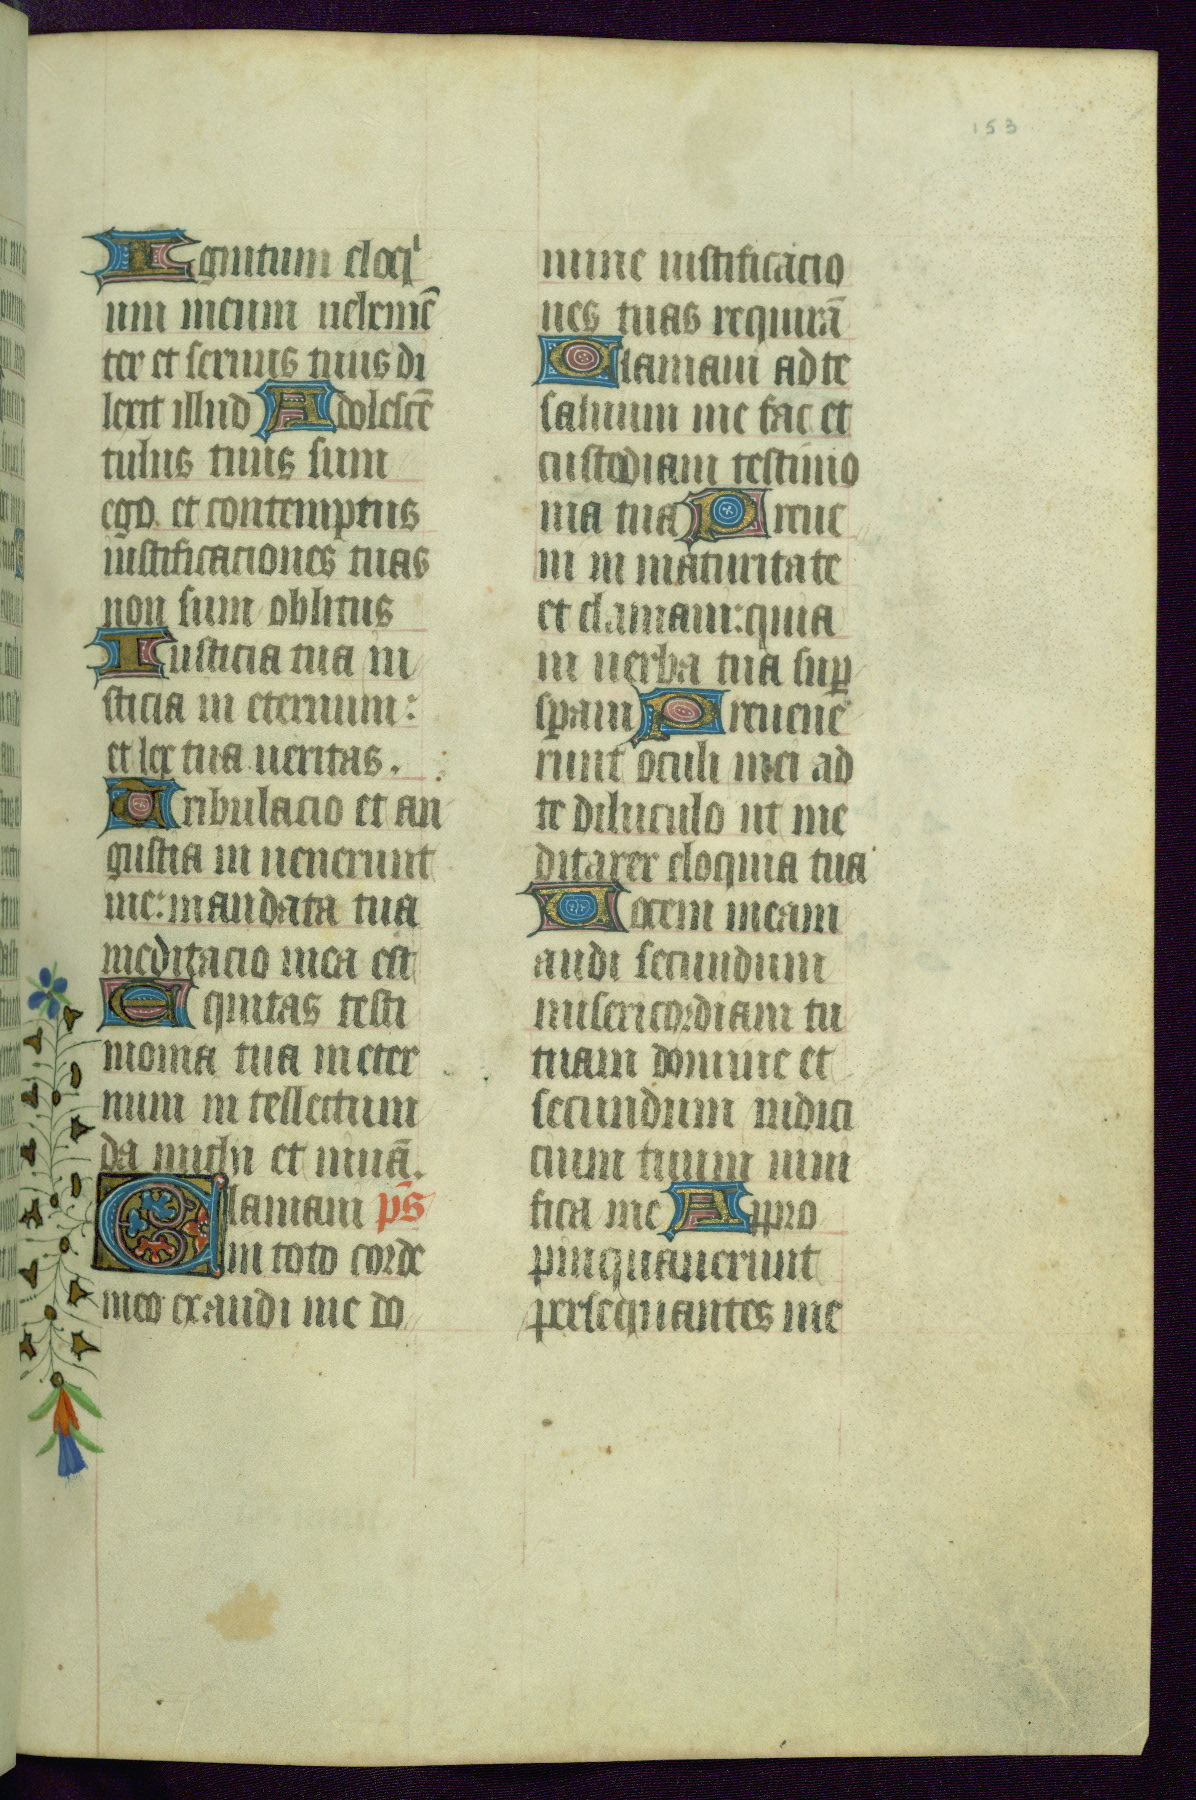 153
Ignitum eloqi
um meum uehemē
ter et seruus tuus di
lexit illud Adolescē
tulus tuus sum
ego et contemptus
iustificaciones tuas
non sum oblitus
Iusticia tua iu
sticia in eternum:
et lex tua ueritas.
Tribulacio et an
gustia in uenerunt
me: mandata tua
meditacio mea est
Equitas testi
monia tua in eter
num in tellectum
da michi et uiuā.
Clamaui ps̄
in toto corde
meo exaudi me do
mine iustificacio
nes tuas requirā
Clamaui ad te
saluum me fac et
custodiam testimo
nia tua Preue
ni in maturitate
et clamaui: quia
in uerba tua sup
spaui Preuene
runt oculi mei ad
te diluculo ut me
ditarer eloquia tua
Uocem meam
audi secundum
misericordiam tu
tuam domine et
secundum iudici
cium tuum uiui
fica me Appro
pinquauerunt
persequantes me